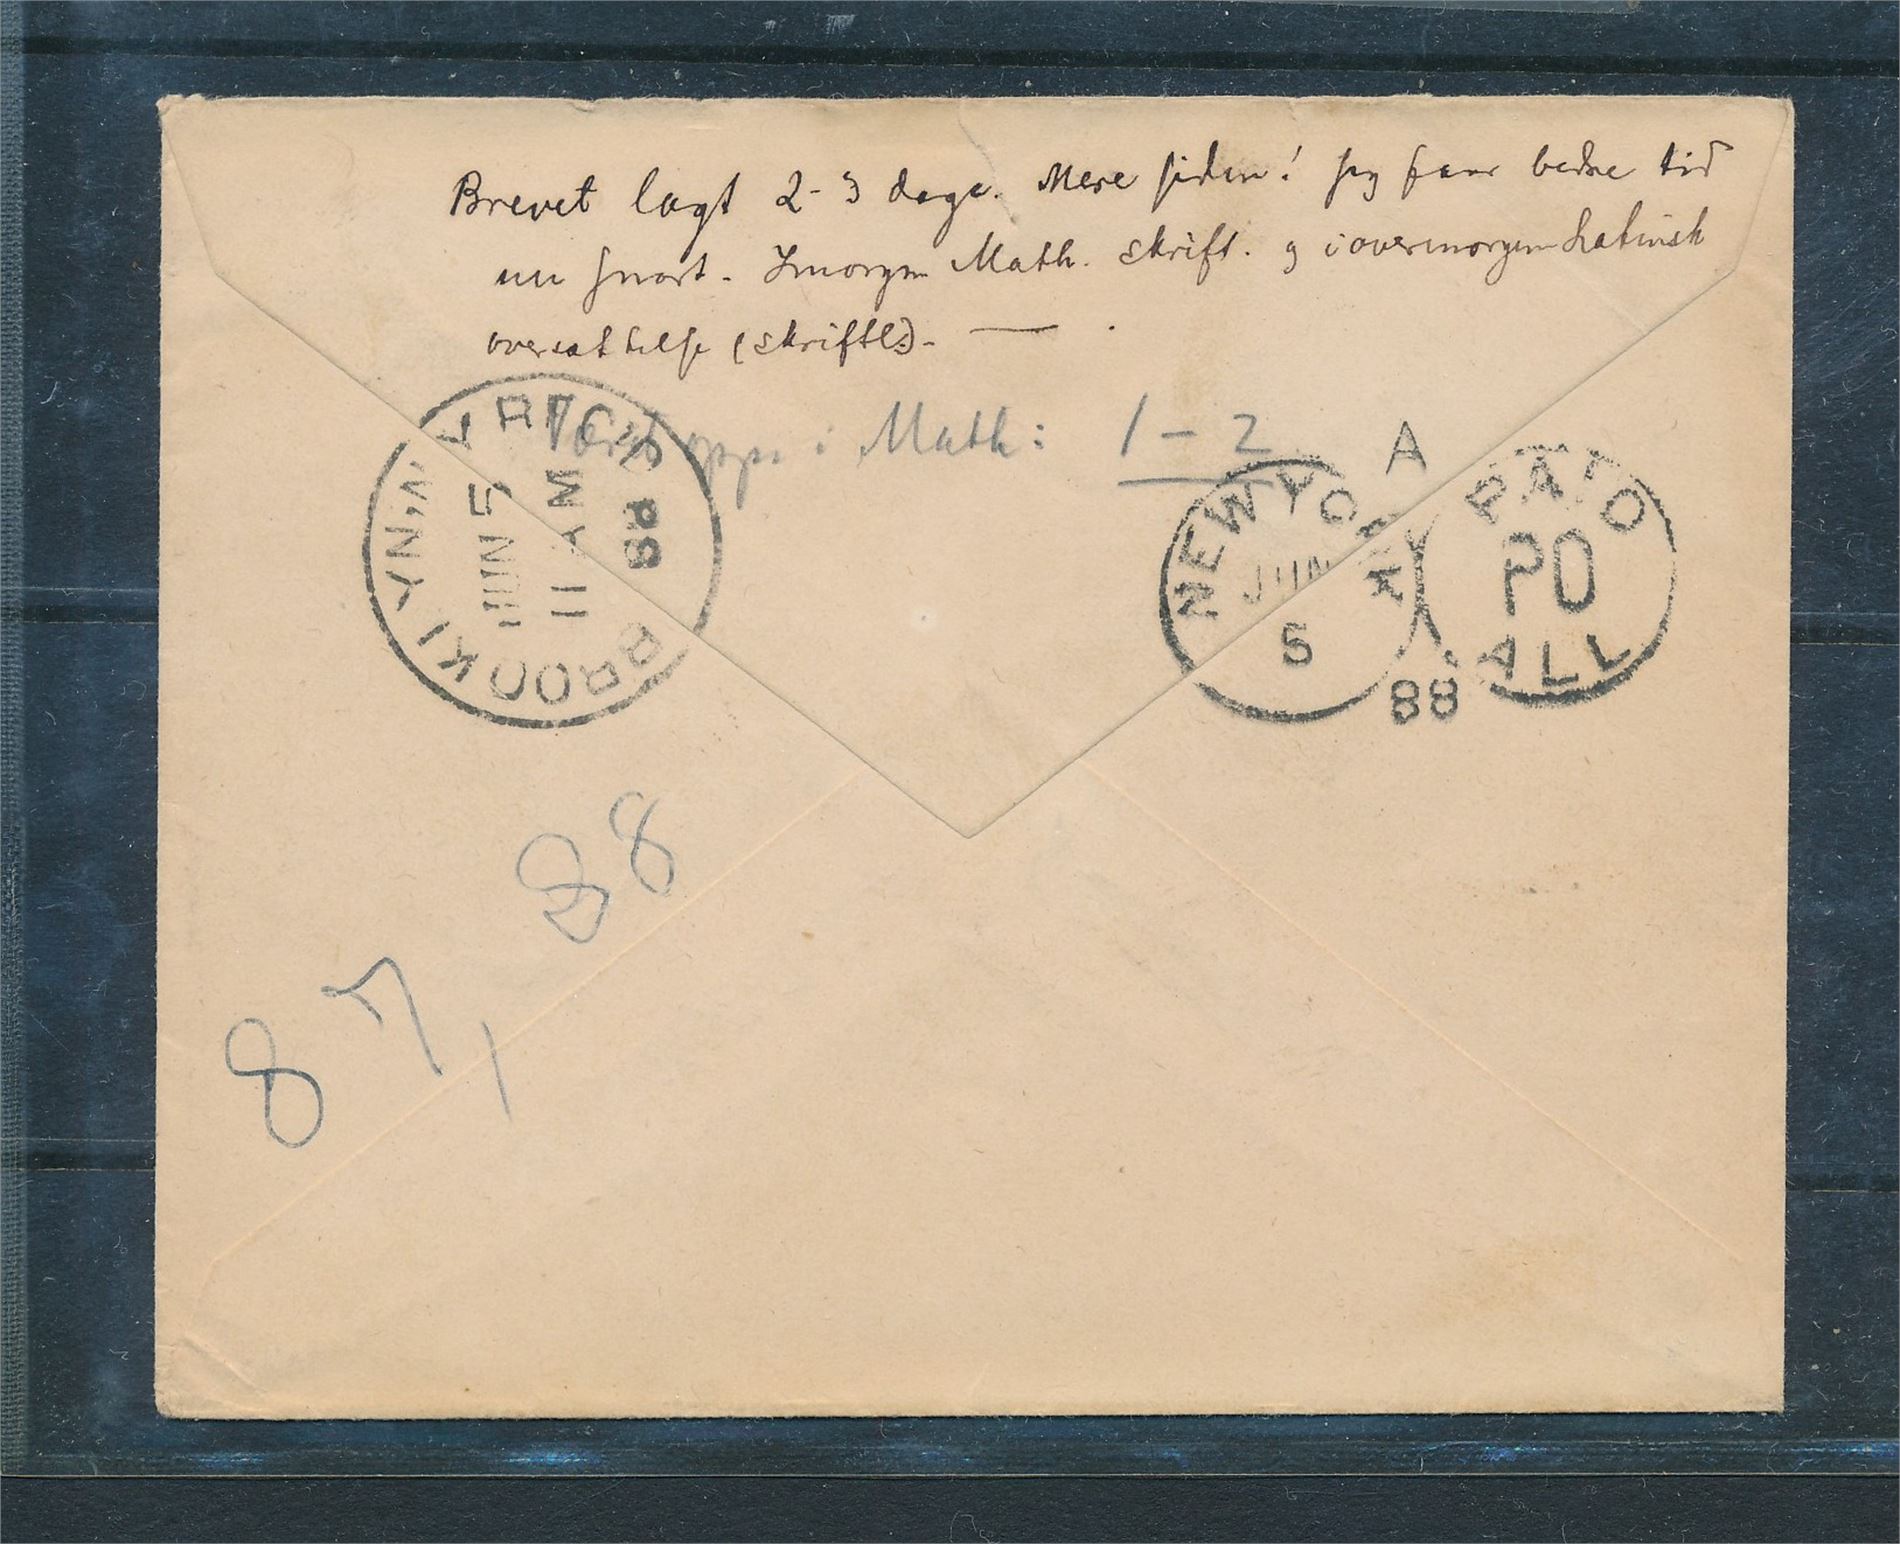 Brevet lagt 2-3 dage. Mere siden! Jeg faar bedre tid
nu snart - Imorgen Math. skrift. og i overmorgen Latinsk
oversættelse (skriftl.). —
opp. i Math: 1-2
BROOKLYN, N.Y. REC'D.
JUN 5
11 AM
88
NEW YORK
JUN
5
88
A
PAID
PO
ALL
87, 88